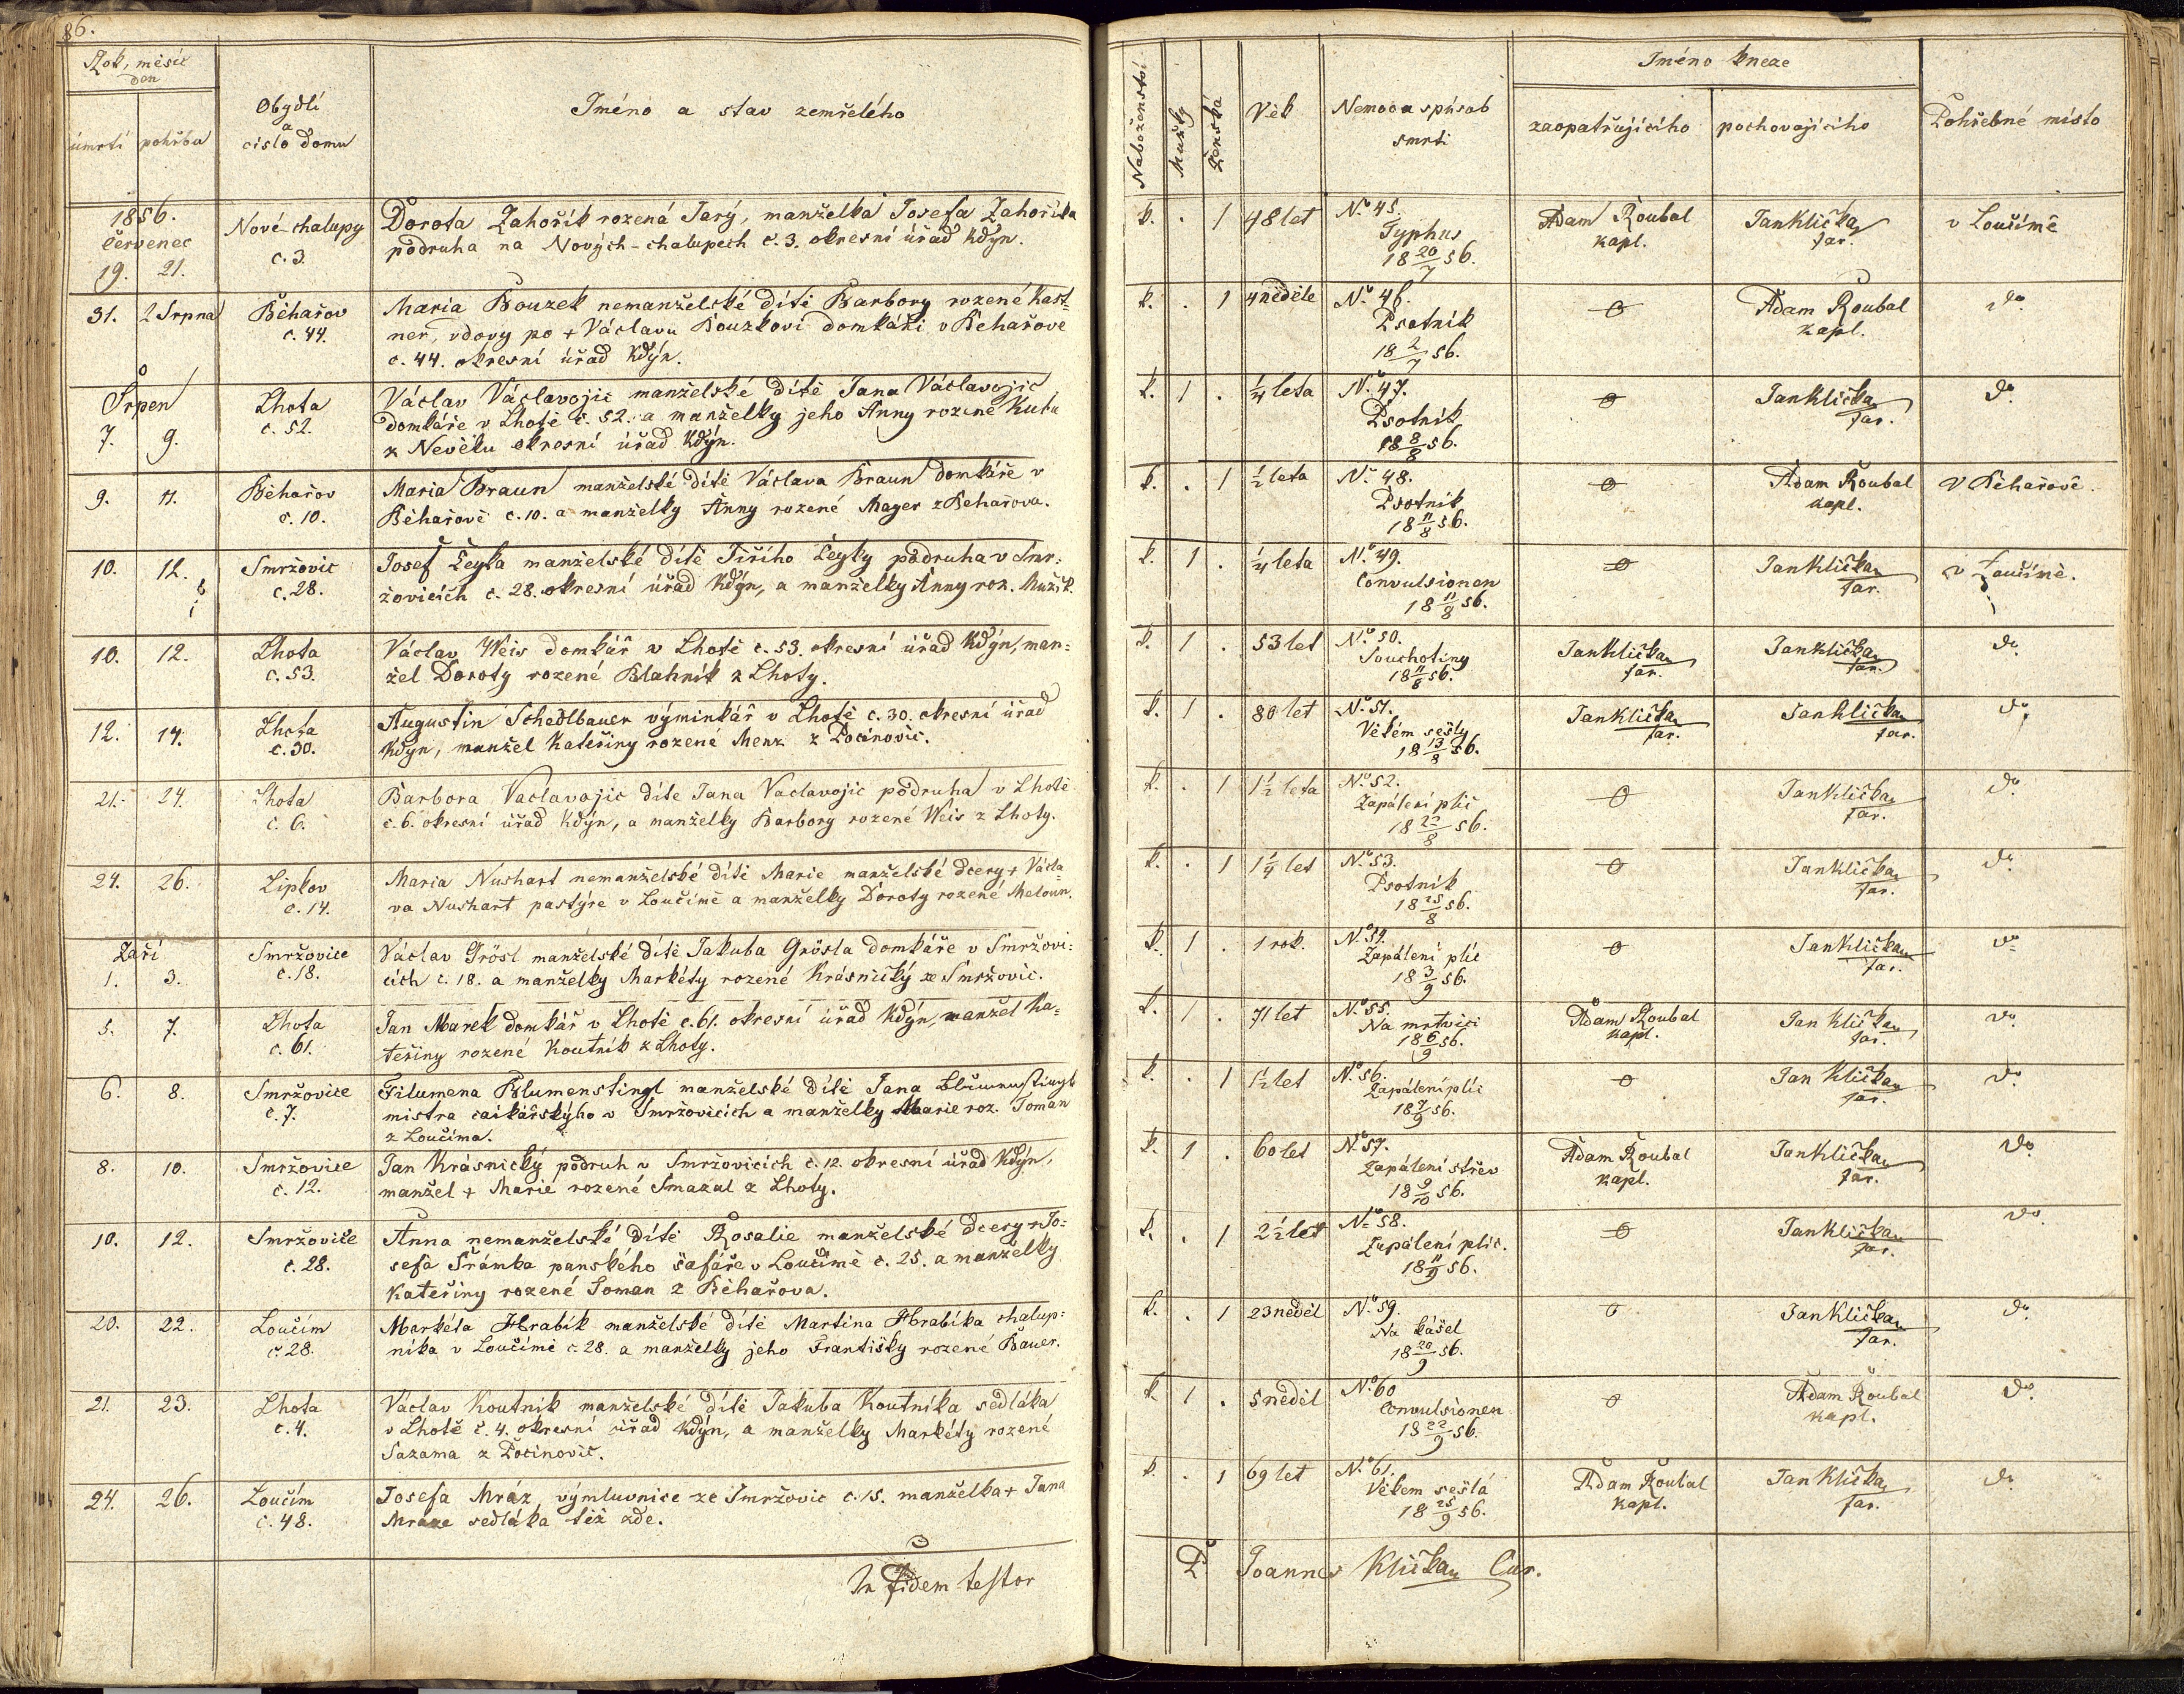 86.
Rok, měsíc
den
úmrtí pohřbu
Obydlí
a
číslo domu
Jméno a stav zemřelého
Náboženství
Mužký
Ženská
Věk
Nemoc a spůsob
smrti
Jméno kneze
zaopatřujícího
pochovajícího
Pohřebné místo
1856.
Červenec
19. 21.
Nové-chalupy
č. 3.
Dorota Zahořík rozená Jarý, manželka Josefa Zahoříka
podruha na Nových-chalupech č. 3. okresní úřad Kdýn.
k. . 1 48 let
No 45.
Typhus
18 20/7 56.
Adam Roubal
kapl.
Jan Klička
far.
v Loučímě
31. 2 Srpna
Běhařov
č. 44.
Maria Bouzek nemanželské dítě Barbory rozené Kast=
ner, vdovy po + Václavu Bouzkovi domkáři v Běhařově
č. 44. okresní úřad Kdýn.
k. . 1 4 neděle
No 46.
Psotník
18 2/7 56.
Adam Roubal
kapl.
do
Srpen
7. 9.
Lhota
č. 52.
Václav Václavojic manželské dítě Jana Václavojic
domkáře v Lhotě č. 52. a manželky jeho Anny rozené Kuta
z Nevěku okresní úřad Kdýn.
k. 1 . 1/4 leta
No 47.
Psotník
18 8/8 56.
Jan Klička
far.
do
9. 11.
Běhařov
č. 10.
Maria Braun manželské dítě Václava Braun domkáře v
Běhařově č. 10. a manželky Anny rozené Mayer z Běhařova.
k. . 1 1/2 leta
No 48.
Psotník
18 11/8 56.
Adam Roubal
kapl.
V Běhařově.
10. 12.
Smržovic
č. 28.
Josef Leyka manželské dítě Jiřího Leyky podruha v Smr=
žovicích č. 28. okresní úřad Kdýn, a manželky Anny roz. Mužík.
k. 1 . 1/4 leta
No 49.
Convulsionen
18 11/8 56.
Jan Klička
far.
v Loučímě.
10. 12.
Lhota
č. 53.
Václav Weis domkář v Lhotě č. 53. okresní úřad Kdýn, man=
žel Doroty rozené Blahník z Lhoty.
k. 1 . 53 let
No 50.
Souchotiny
18 11/8 56.
Jan Klička
far.
Jan Klička
far.
do
12. 14.
Lhota
č. 30.
Augustin Schedlbauer výminkář v Lhotě č. 30. okresní úřad
Kdýn, manžel Kateřiny rozené Menz z Pocinovic.
k. 1 . 80 let
No 51.
Věkem sešlý
18 13/8 56.
Jan Klička
far.
Jan Klička
far.
do
21. 24.
Lhota
č. 6.
Barbora Vaclavojic díte Jana Vaclavojic podruha v Lhotě
č. 6. okresní úřad Kdýn, a manželky Barbory rozené Weis z Lhoty.
k. . 1 1 1/2 leta
No 52.
Zapálení plic
18 22/8 56.
Jan Klička
far.
do
24. 26.
Lipkov
č. 14.
Maria Nushart nemanželské dítě Marie manželské dcery + Václa=
va Nushart pastýře v Loučímě a manželky Doroty rozené Meloun.
k. . 1 1 1/4 let
No 53.
Psotník
18 25/8 56.
Jan Klička
far.
do
Září
1. 3.
Smržovice
č. 18.
Václav Grösl manželské dítě Jakuba Grösla domkáře v Smržovi=
cích č. 18. a manželky Markéty rozené Krásnický ze Smržovic.
k. 1 . 1 rok.
No 54.
Zapálení plíc
18 3/9 56.
Jan Klička
far.
do
5. 7.
Lhota
č. 61.
Jan Marek domkář v Lhotě č. 61. okresní úřad Kdýn, manžel Ka=
teřiny rozené Koutník z Lhoty.
k. 1 . 71 let
No 55.
Na mrtvici
18 6/9 56.
Adam Roubal
kapl.
Jan Klička
far.
do
6. 8.
Smržovice
č. 7.
Filumena Blumenstingl manželské dítě Jana Blumenstingl
mistra caikářskýho v Smržovicích a manželky Marie roz. Toman
z Loučíma.
k. . 1 1 1/2 let
No 56.
Zapálení plic
18 7/9 56.
Jan Klička
far.
do
8. 10.
Smržovice
č. 12.
Jan Krásnický podruh v Smržovicích č. 12. okresní úřad Kdýn,
manžel + Marie rozené Smazal z Lhoty.
k. 1 . 60 let
No 57.
Zapálení střev
18 9/10 56.
Adam Roubal
kapl.
Jan Klička
far.
do
10. 12.
Smržovice
č. 28.
Anna nemanželské dítě Rosalie manželské dcery + Jo=
sefa Šrámka panského šafáře v Loučímě č. 25. a manželky
Kateřiny rozené Toman z Běhařova.
k. . 1 2 1/2 let
No 58.
Zapálení plic.
18 11/9 56.
Jan Klička
far.
do
20. 22.
Loučím
č. 28.
Markéta Hrabík manželské dítě Martina Hrabíka chalup=
níka v Loučímě č. 28. a manželky jeho Františky rozené Bauer.
k. . 1 23 neděl
No 59.
Na kášel
18 20/9 56.
Jan Klička
far.
do
21. 23.
Lhota
č. 4.
Václav Koutník manželské dítě Jakuba Koutníka sedláka
v Lhotě č. 4. okresní úřad Kdýn, a manželky Markéty rozené
Sazama z Pocinovic.
k. 1 . 5 neděl
No 60
Convulsionen
18 22/9 56.
Adam Roubal
kapl.
do
24. 26.
Loučím
č. 48.
Josefa Mráz, výmluvnice ze Smržovic č. 15. manželka + Jana
Mráze sedláka též zde.
k. . 1 69 let
No 61.
Věkem sešlá
18 25/9 56.
Adam Roubal
kapl.
Jan Klička
far.
do
In fidem testor
P. Joannes Klička Cur.